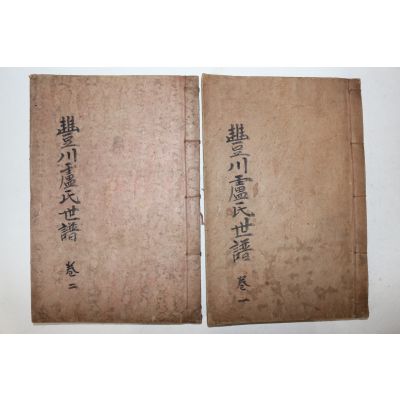 豊川盧氏世譜
卷一
豊川盧氏世譜
卷二